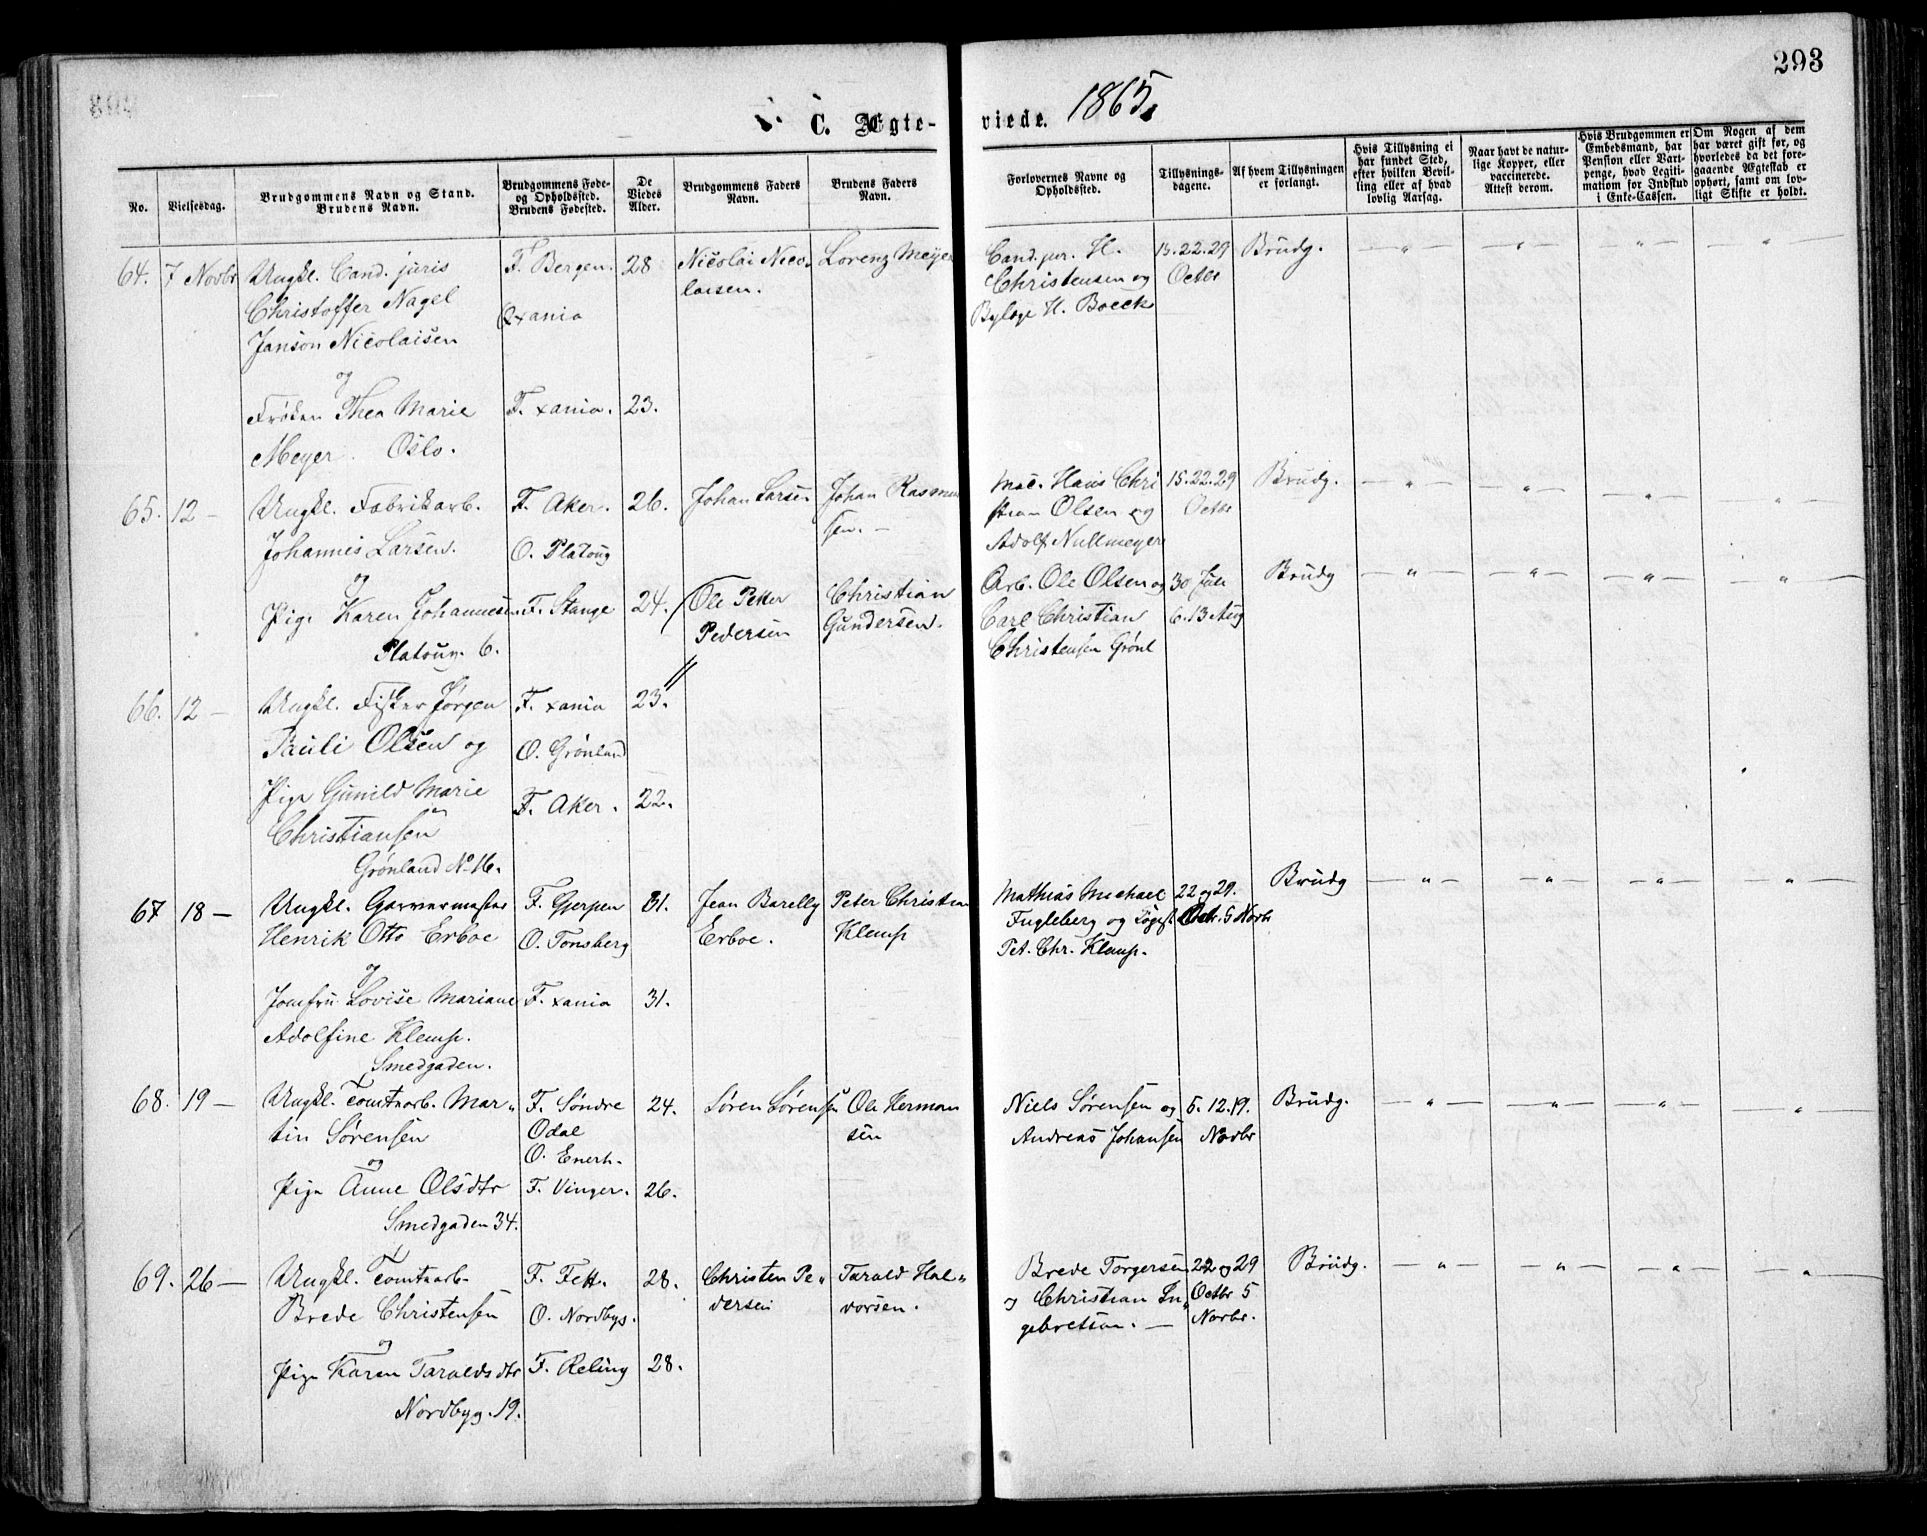 293
C. Ægteviede. 1865.
No.
Vielsesdag.
Brudgommens Navn og Stand.
Brudens Navn.
Brudgommens Føde-
og Opholdssted.
Brudens Fødested.
De
Viedes
Alder.
Brudgommens Faders
Navn.
Brudens Faders
Navn.
Forlovernes Navne og
Opholdssted.
Tillysnings-
dagene.
Af hvem Tillysningen
er forlangt.
Hvis Tillysning ei
har fundet Sted,
efter hvilken Bevil-
ling eller af hvad
lovlig Aarsag.
Naar havt de natur-
lige Kopper, eller
vaccinerede.
Attest derom.
Hvis Brudgommen er
Embedsmand, har
Pension eller Vart-
penge, hvad Legiti-
mation for Indskud
i Enke-Cassen.
Om Nogen af dem
har været gift før, og
hvorledes da det fore-
gaaende Ægteskab er
ophørt, samt om lov-
ligt Skifte er holdt.
64. 7 Novbr
Ungkl. Cand. juris
Christoffer Nagel
Janson Nicolaisen
og
Frøken Thea Marie
Meyer. Oslo.
F. Bergen.
O xania
F. xania.
28
23.
Nicolai Nico-
laisen.
Lorenz Meyer
Cand. jur. H.
Christensen og
H. Boeck
15. 22. 29
Octbr
Brudg.
65. 12 —
Ungkl. Fabrikarb.
Johannes Larsen.
og
Pige Karen Johannesen
Platoug. 6.
F. Aker.
O. Platoug
F. Stange
26.
24.
Johan Larsen
Johan Rasmus
sen. —
Mac. Hans Chri
stian Olsen og
Adolf Nullmeyer
15. 22. 29
Octbr
Brudg.
66. 12 —
Ungkl. Fisker Jørgen
Pauli Olsen og
Pige Gunild Marie
Christiansen
Grønland No 16.
F. xania
O. Grønland
F. Aker.
23.
22.
Ole Petter
Pedersen
Christian
Gundersen.
Arb. Ole Olsen og
Carl Christian
Christensen Grønl
30 Juli
6. 13 Aug
Brudg
67 18 —
Ungkl. Garvermester
Henrik Otto Erboe
og
Jomfru Lovise Mariane
Adolfine Klemp.
Smedgaden.
F. Gjerpen
O. Tønsberg
F. xania
31.
31.
Jean Barelly
Erboe.
Peter Christian
Klemp
Mathias Michael
Fugleberg og
Pet. Chr. Klemp.
22 og 29.
Octr. 5 Novbr
Brudg
68. 19 —
Ungkl. Tomtearb. Mar-
tin Sørensen
og
Pige Anne Olsdtr
Smedgaden 34.
F. Søndre
Odal
O. Enerh.
F. Vinger.
24.
26.
Søren Sørensen
Ole Herman
sen
Niels Sørensen og
Andreas Johansen
5. 12. 19.
Novbr
Brudg.
69. 26 —
Ungkl. Tomtearb.
Brede Christensen
og
Pige Karen Taraldsdtr
Nordbyg. 19.
F. Fett.
O. Nordbyg.
F. Reling
28.
28.
Christen Pe-
dersen
Tarald Hal-
vorsen.
Brede Torgersen
og Christian In-
gebretsen. —
22 og 29
Octbr 5
Novbr.
Brudg.